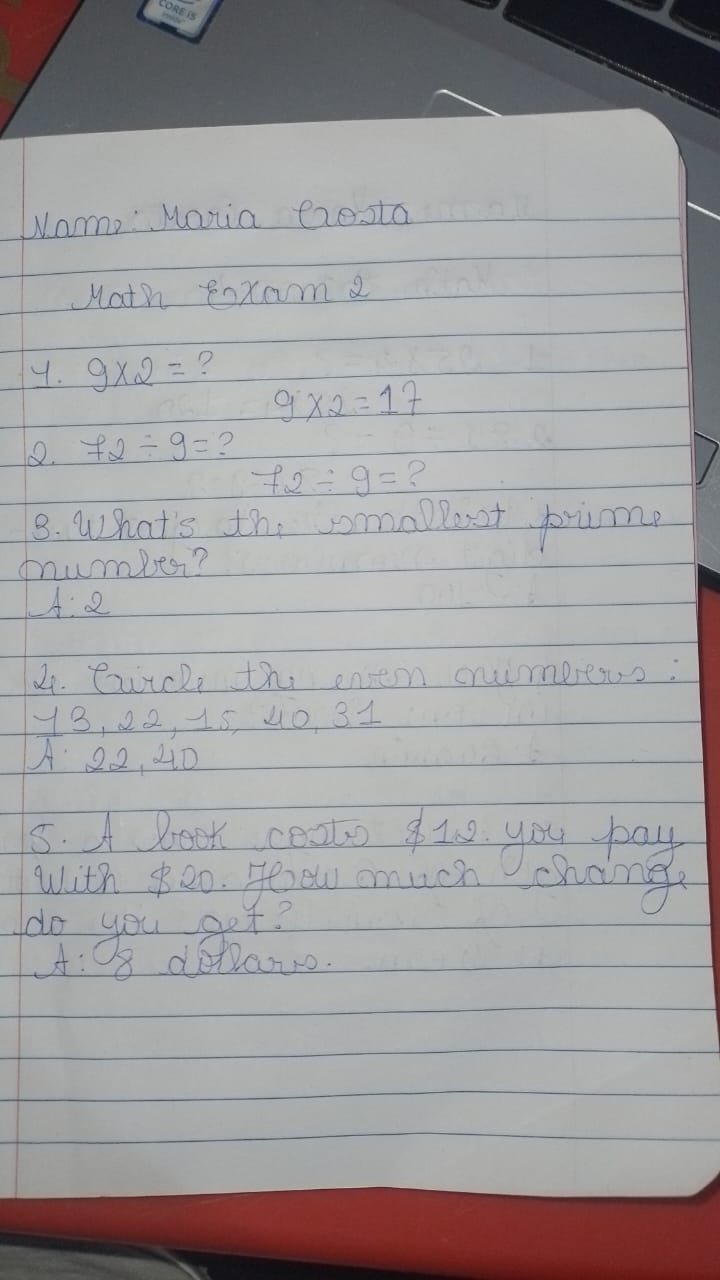 CORE i5
inside
Name: Maria Crosta
Math Exam 2
1. 9x2=?
9x2=17
2. 72÷9=?
72÷9=?
3. What's the smallest prime
number?
A: 2
4. Circle the even numbers:
13, 22, 15, 40, 31
A: 22, 40
5. A book costs $12. you pay
With $20. How much change
do you get?
A: 8 dollars.